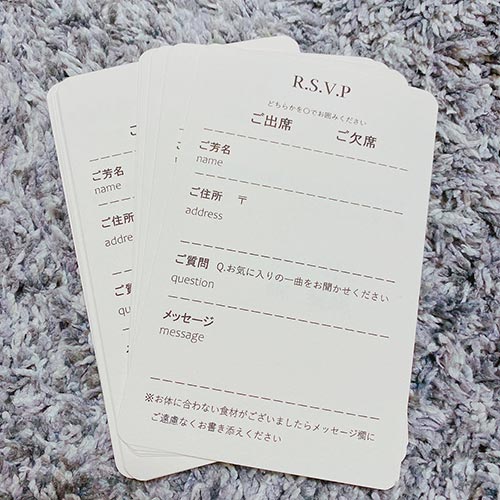 R.S.V.P
どちらかを○でお囲みください
ご出席 ご欠席
ご芳名
name
ご住所 〒
address
ご質問 Q.お気に入りの一曲をお聞かせください
question
メッセージ
message
※お体に合わない食材がございましたらメッセージ欄に
ご遠慮なくお書き添えください
ご芳名
name
ご住所
addre
ご質
que